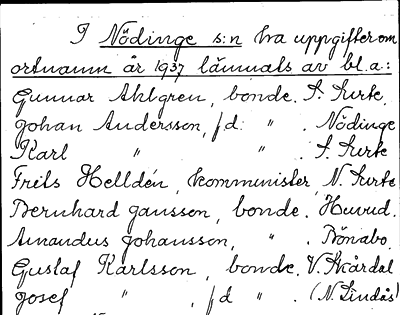 I Nödinge s:n ha uppgifter om
ortnamn år 1937 lämnats av bl.a:
Gunnar Ahlgren, bonde. S. Surte.
Johan Andersson, f.d. " . Nödinge
Karl " " . S. Surte
Frits Helldén, komminister, N. Surte
Bernhard Jansson, bonde. Huvud.
Amandus Johansson, " . Bönabo.
Gustaf Karlsson, bonde. V. Skårdal
Josef " , f.d " . (N. Lindås)